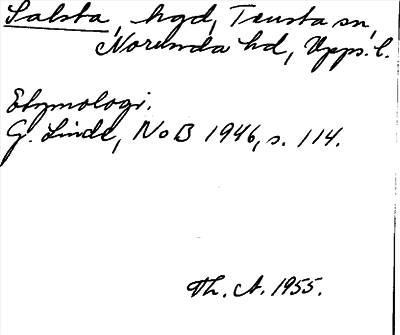 Salsta, hgd, Tensta sn,
Norunda hd, Upps. l.
Etymologi.
G. Linde, NoB 1946, s. 114.
Th. A. 1955.